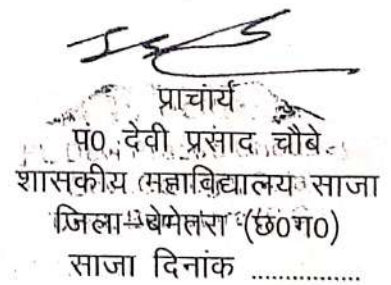 प्राचार्य
पं0 देवी प्रसाद चौबे
शासकीय महाविद्यालय साजा
जिला-बेमेतरा (छ0ग0)
साजा दिनांक ..............